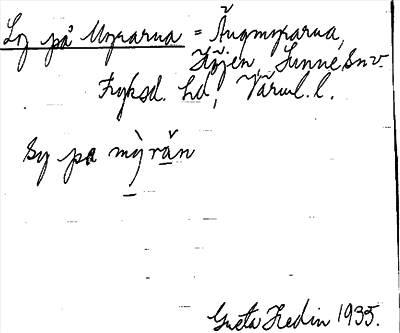 Loj på Myrarna = Ängmyrarna,
Höjen, Sunne, Snv.
Fryksd. hd, Värml. l.
pa mỳrăn
Greta Hedin 1935.